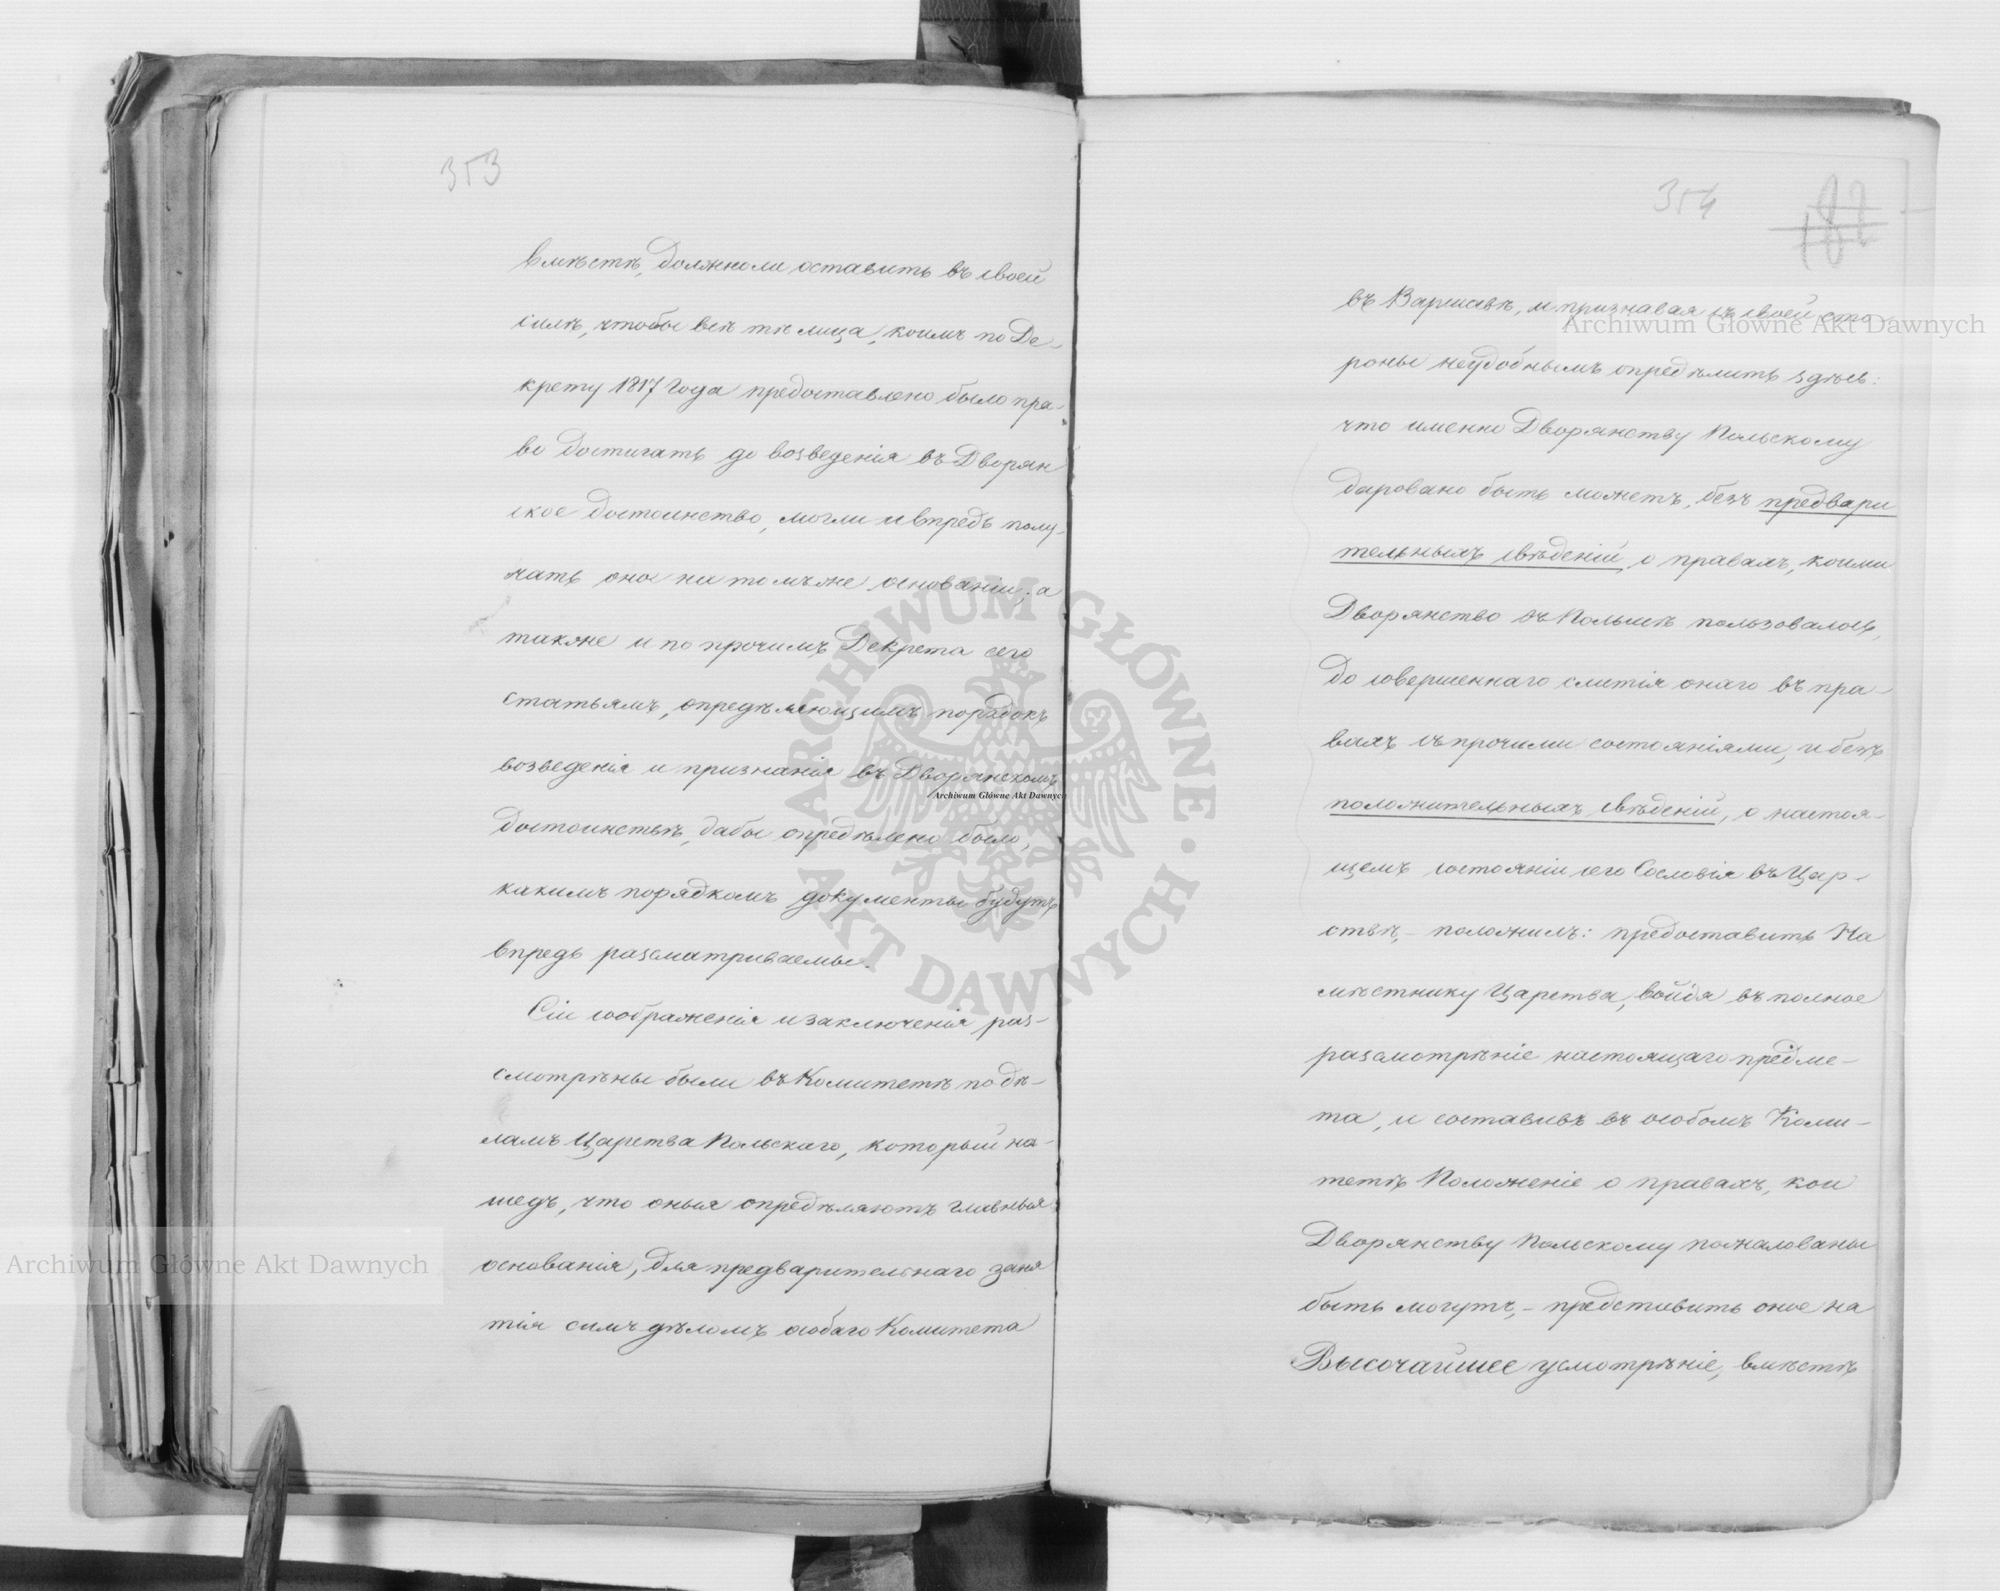 353
вмѣстѣ, должно ли оставить въ своей
силѣ, чтобы всѣ тѣ лица, коимъ по Де-
крету 1817 года предоставлено было пра-
во достигать до возведенія въ Дворян
ское достоинство, могли и впредь полу-
чать оное на томъ же основаніи; а
также и по прочимъ Декрета сего
статьямъ, опредѣляющимъ порядокъ
возведенія и признанія въ Дворянскомъ
достоинствѣ, дабы опредѣлено было,
какимъ порядкомъ документы будутъ
впредь разсматриваемы.
Сіи соображенія и заключенія раз-
смотрѣны были въ Комитетѣ по дѣ-
ламъ Царства Польскаго, который на-
шедъ, что оныя опредѣляютъ главныя
основанія, для предварительнаго заня
тія симъ дѣломъ особаго Комитета
354
въ Варшавѣ, и признавая съ своей сто-
роны неудобнымъ опредѣлить здѣсь:
что именно Дворянству Польскому
даровано быть можетъ, безъ предвари
тельныхъ свѣденій, о правахъ, коими
Дворянство въ Польшѣ пользовалось,
до совершеннаго слитія онаго въ пра-
вахъ съ прочими состояніями, и безъ
положительныхъ свѣденій, о настоя-
щемъ состояніи сего Сословія въ Цар-
ствѣ, - положилъ: предоставить На
мѣстнику Царства, войдя въ полное
разсмотрѣніе настоящаго предме-
та, и составивъ въ особомъ Коми-
тетѣ Положеніе о правахъ, кои
Дворянству Польскому пожалованы
быть могутъ, - представить оное на
Высочайшее усмотрѣніе, вмѣстѣ
Archiwum Główne Akt Dawnych
Archiwum Główne Akt Dawnych
Archiwum Główne Akt Dawnych
ARCHIWUM GŁÓWNE · AKT DAWNYCH ·